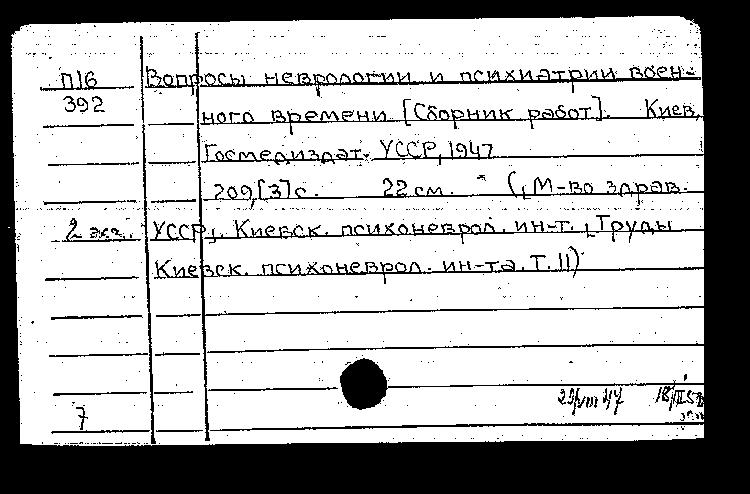 П16 Вопросы неврологии и психиатрии воен-
392 ного времени [Сборник работ]. Киев,
Госмедиздат. УССР, 1947
209,[3]с. 22 см. (М-во здрав.
2 экз. УССР. Киевск. психоневрол. ин-т. Труды
Киевск. психоневрол. ин-та. Т. II)
7 29/VIII 47